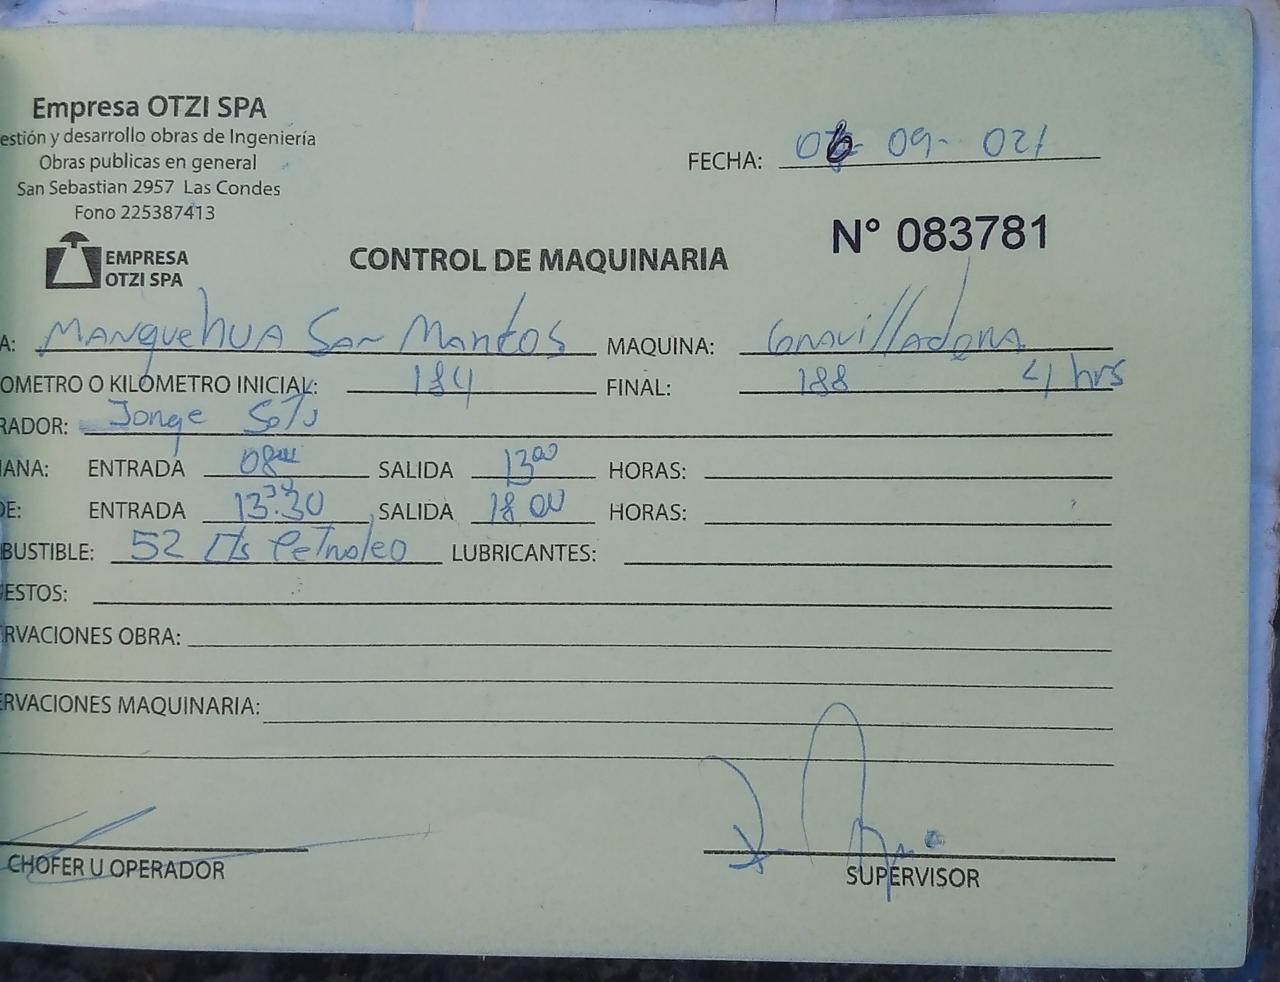 Empresa OTZI SPA
estión y desarrollo obras de Ingeniería
Obras publicas en general
San Sebastian 2957 Las Condes
Fono 225387413
EMPRESA
OTZI SPA
CONTROL DE MAQUINARIA
FECHA: 06- 09- 021
N° 083781
A: MANquehUA San Mantos MAQUINA: Gravilladora
OMETRO O KILÓMETRO INICIAL: 184 FINAL: 188 4 hrs
RADOR: Jorge Soto
ANA: ENTRADA 08 SALIDA 13 00 HORAS:
DE: ENTRADA 13:30 SALIDA 18 00 HORAS:
BUSTIBLE: 52 Lts Petroleo LUBRICANTES:
ESTOS:
RVACIONES OBRA:
ERVACIONES MAQUINARIA:
CHOFER U OPERADOR
SUPERVISOR